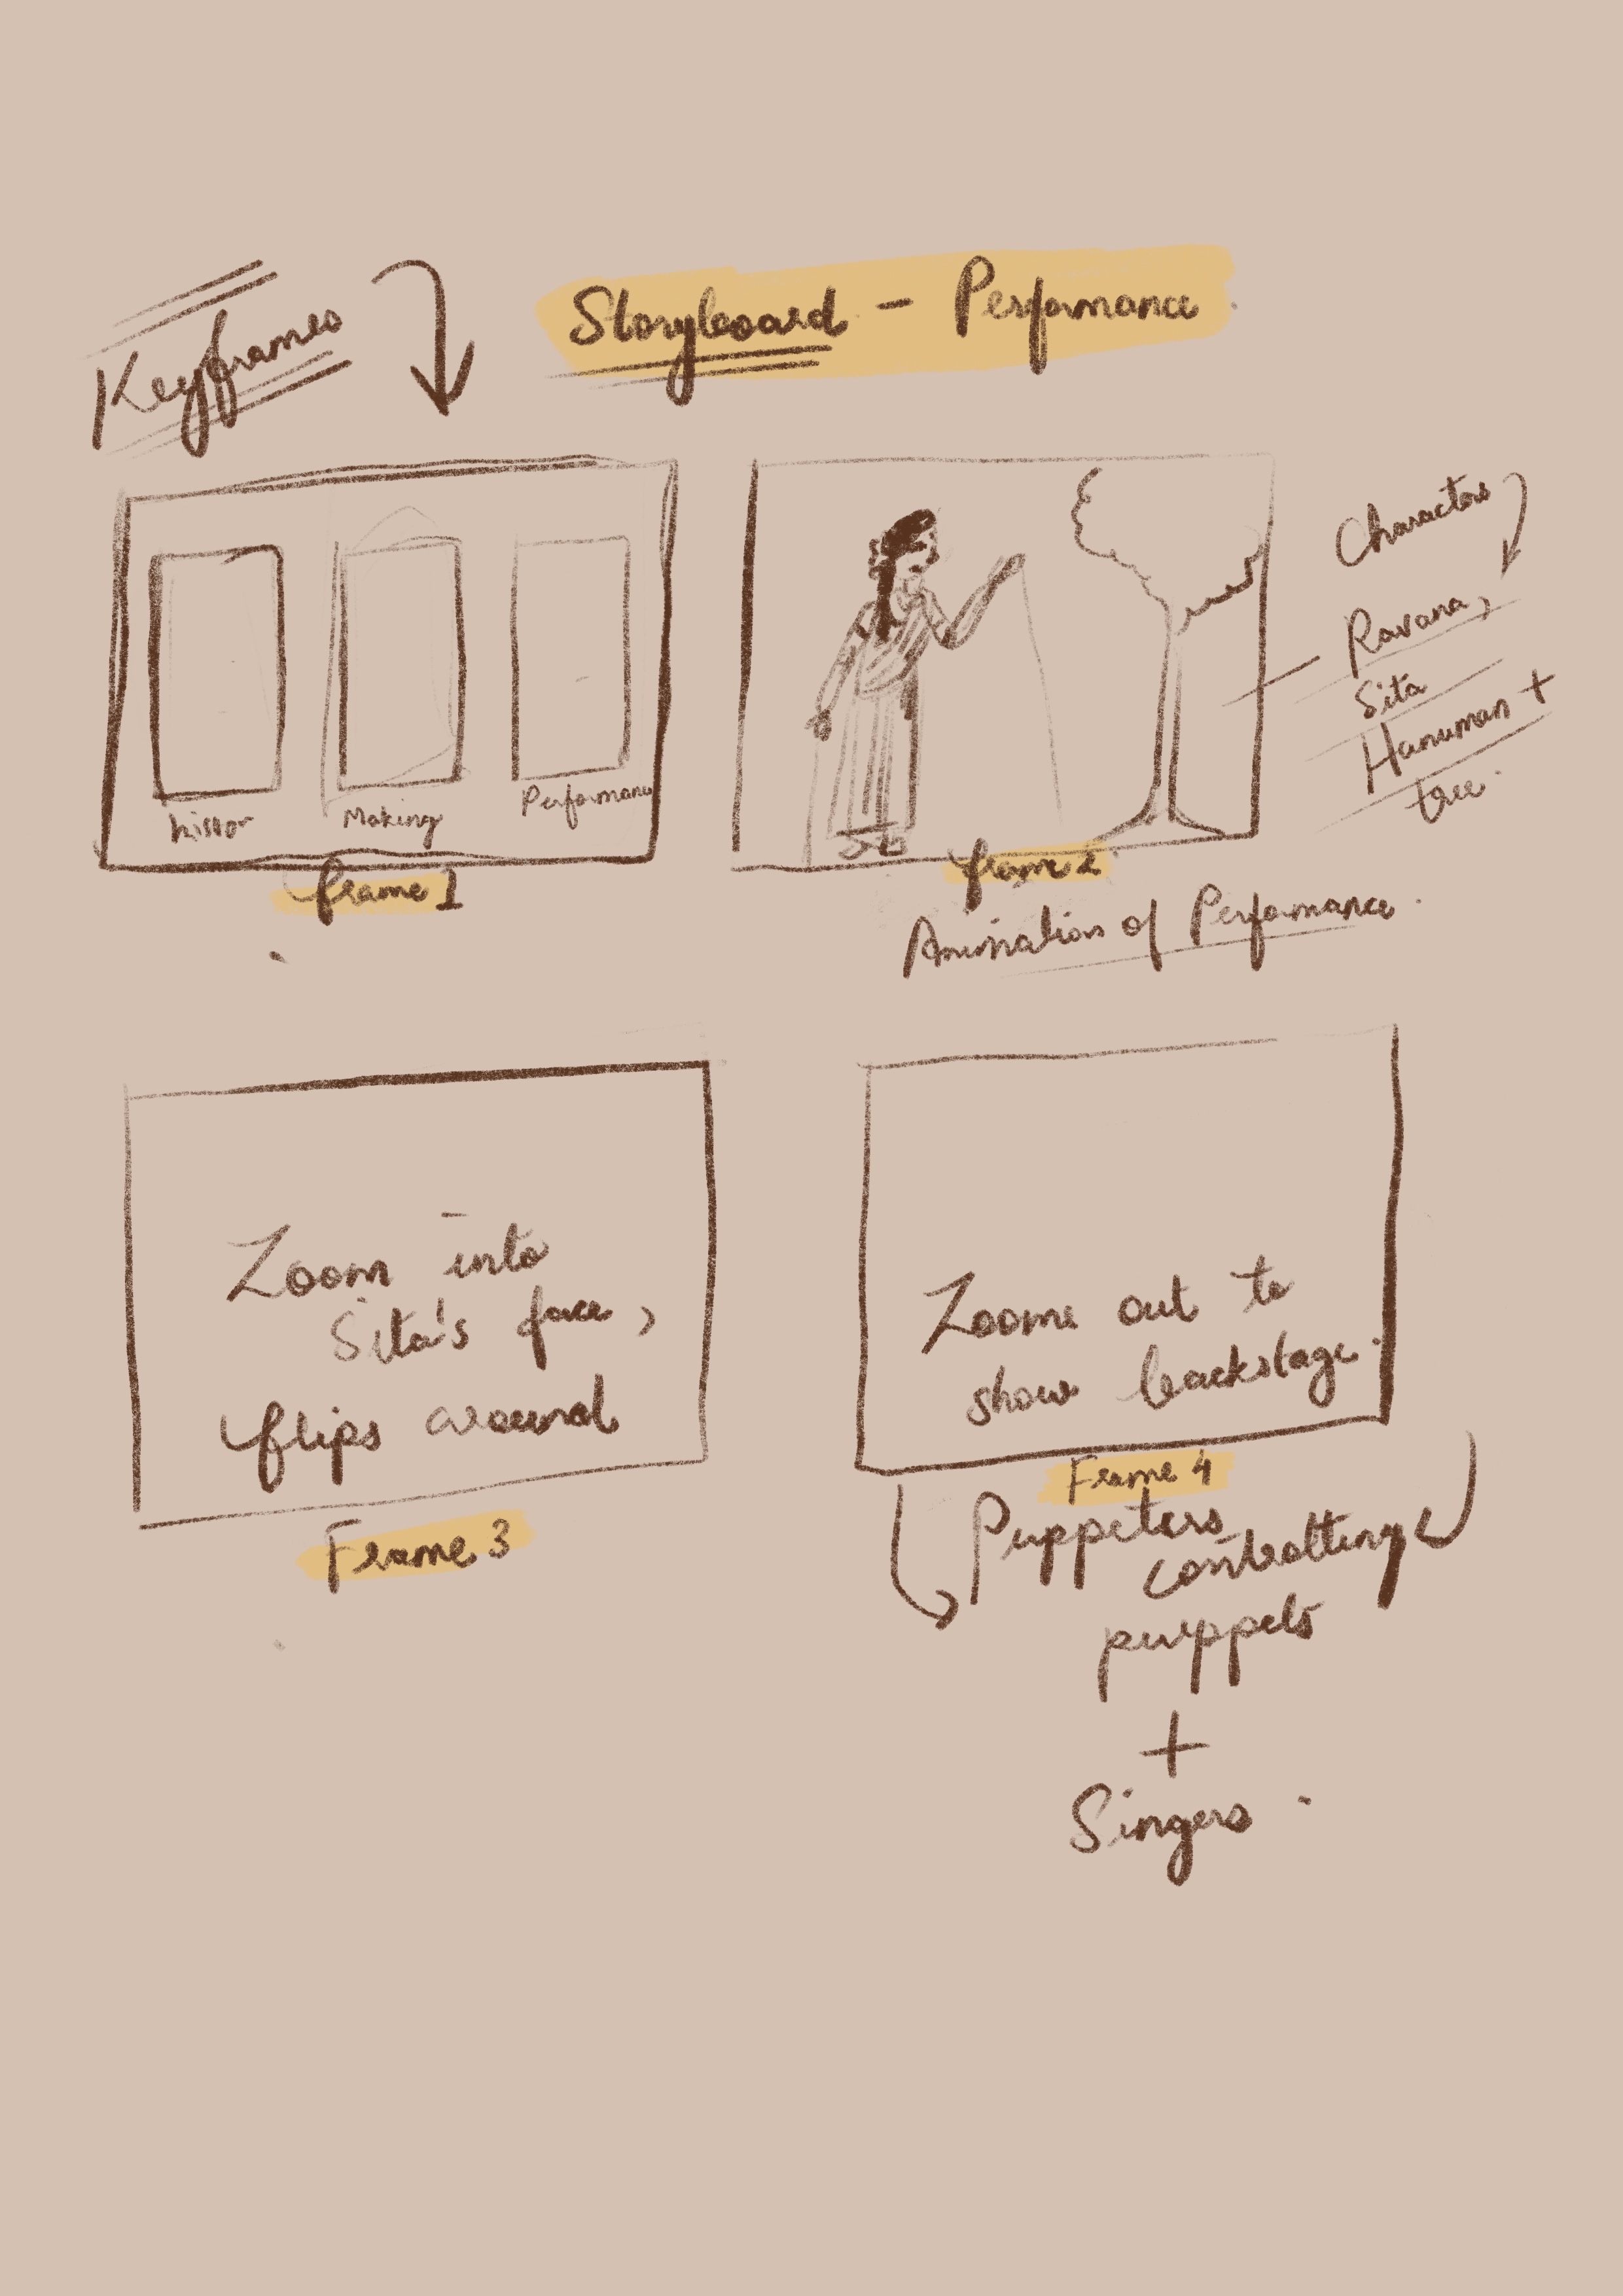 Keyframes
Storyboard - Performance.
histor
Making
Performance
frame 1
Characters
Ravana,
Sita
Hanuman +
tree.
frame 2
Animation of Performance.
Zoom into
Sita's face,
flips around
Frame 3
Zooms out to
show backstage.
Frame 4
Puppeters
controlling
puppets
+
Singers.